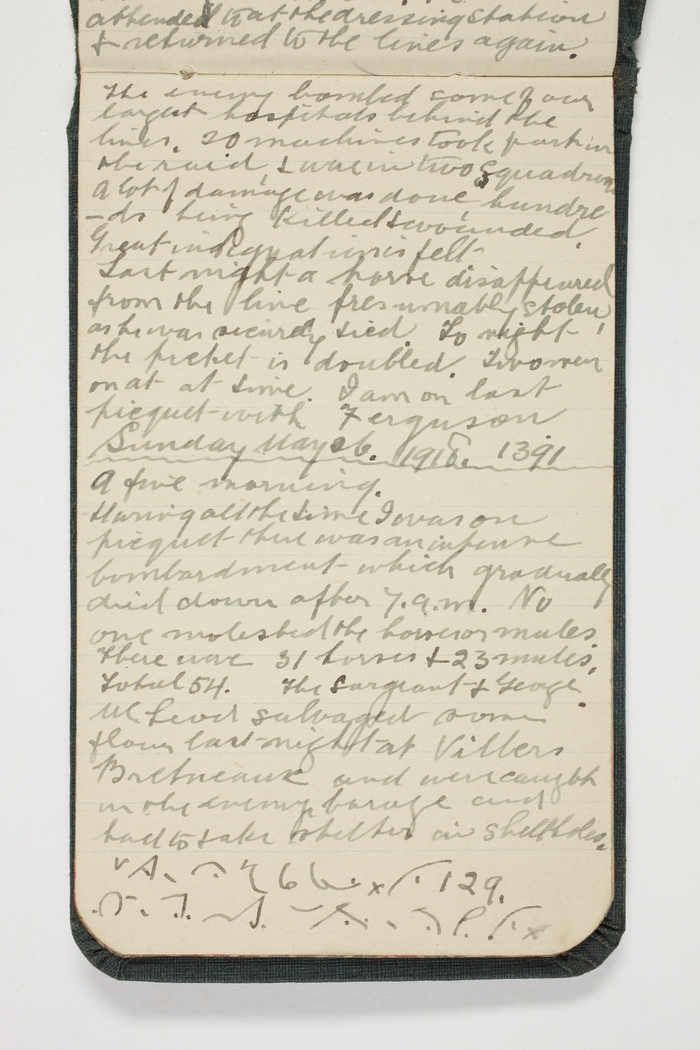 attended to at the dressing station
& returned to the lines again.
The enemy bombed some of our
largest hospitals behind the
lines. 20 machines took part in
the raid, & were in two squadrons
A lot of damage was done hundre
-ds being killed & wounded.
Great indignation is felt
Last night a horse disappeared
from the line presumably stolen,
as he was securely tied. To night
the picket is doubled. Two men
on at a time. I am on last
picquet with Ferguson
Sunday May 26. 1918. 1391
A fine morning.
During all the time I was on
picquet there was an intense
bombardment which gradually
died down after 7.a.m. No
one molested the horses or mules
There were 31 horses & 23 mules,
Total 54. The Sargeant & George
McLeod salvaged some
flour last night at Villers
Bretneaux and were caught
in the enemy barage and
had to take shelter in shellholes.
129.